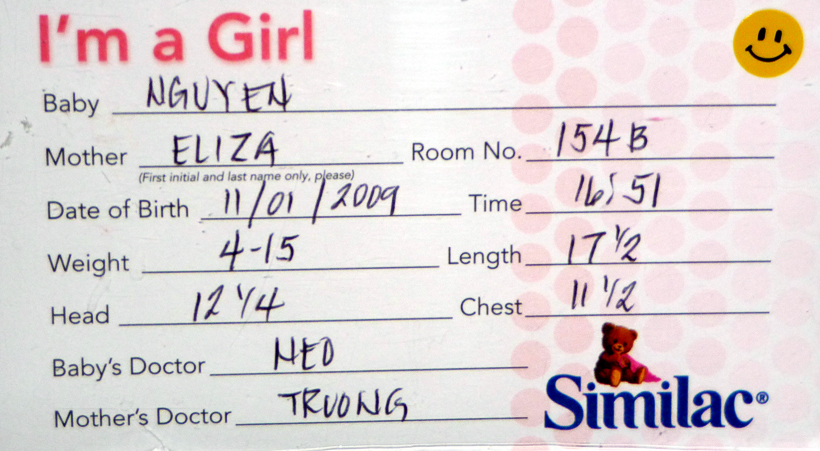 I'm a Girl
Baby NGUYEN
Mother ELIZA Room No. 154 B
(First initial and last name only, please)
Date of Birth 11/01/2009 Time 16:51
Weight 4-15 Length 17 1/2
Head 12 1/4 Chest 11 1/2
Baby's Doctor NEO
Mother's Doctor TRUONG
Similac®